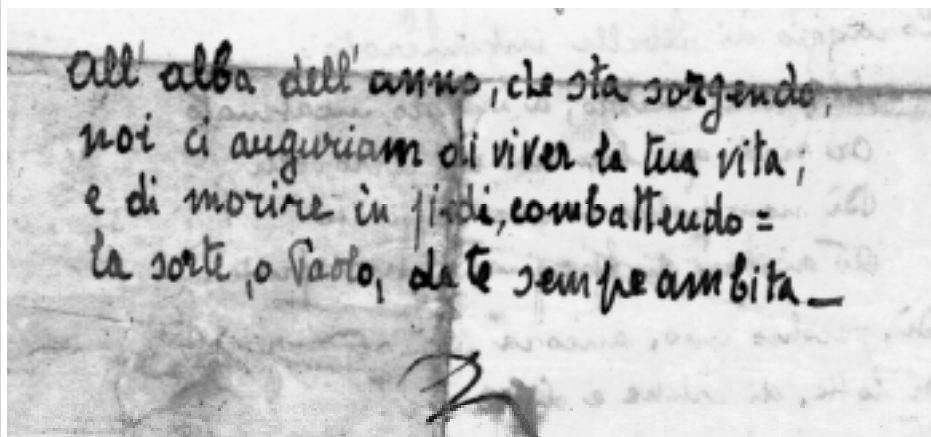 All' alba dell' anno, che sta sorgendo,
noi ci auguriam di viver la tua vita,
e di morire in piedi, combattendo =
la sorte, o Paolo, da te sempre ambita_